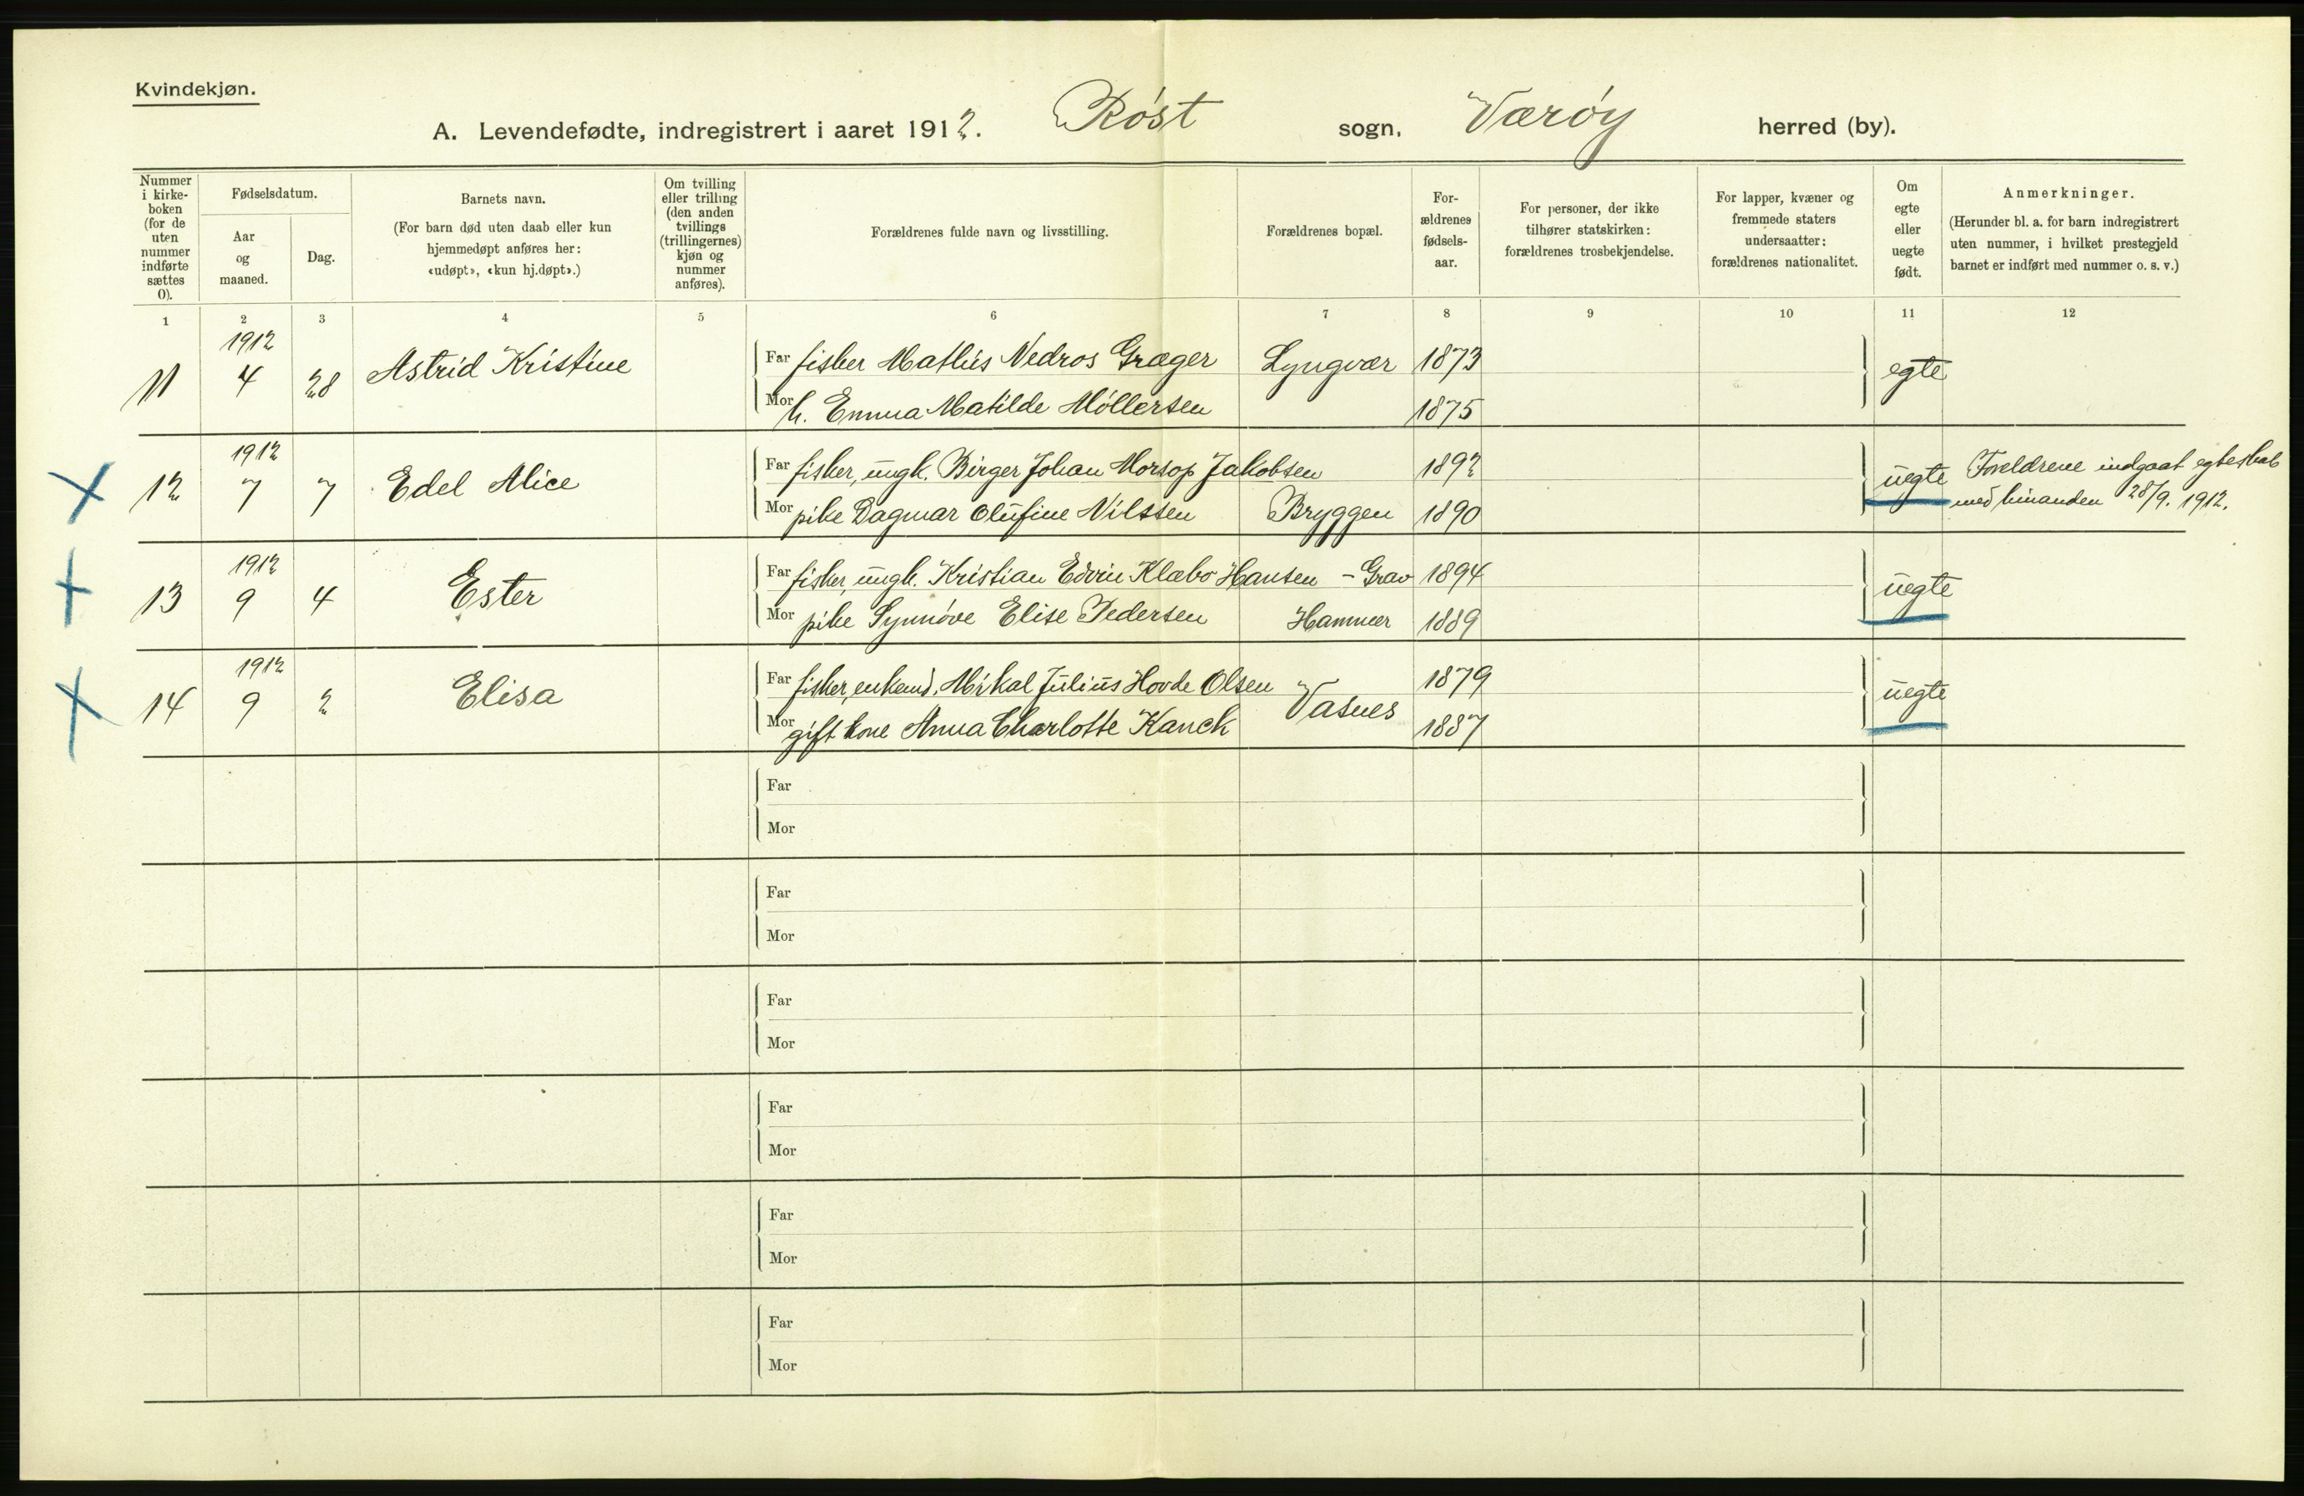 Kvindekjøn.
A. Levendefødte, indregistrert i aaret 1912. Röst sogn, Værøy herred (by).
Nummer i kirke-boken (for de uten nummer indførte sættes 0).
Fødselsdatum.
Aar og maaned.
Dag.
Barnets navn.
(For barn død uten daab eller kun hjemmedøpt anføres her: «udøpt», «kun hj.døpt».)
Om tvilling eller trilling (den anden tvillings (trillingernes) kjøn og nummer anføres).
Forældrenes fulde navn og livsstilling.
Forældrenes bopæl.
For-ældrenes fødsels-aar.
For personer, der ikke tilhører statskirken: forældrenes trosbekjendelse.
For lapper, kvæner og fremmede staters undersaatter: forældrenes nationalitet.
Om egte eller uegte født.
Anmerkninger.
(Herunder bl. a. for barn indregistrert uten nummer, i hvilket prestegjeld barnet er indført med nummer o. s. v.)
1 2 3 4 5 6 7 8 9 10 11 12
11 1912 4 28 Astrid Kristine
Far fisker Mathis Nedros Græger Lyngvær 1873 egte
Mor h. Emma Matilde Möllersen 1875
12 1912 7 7 Edel Alice
Far fisker, ungk. Birger Johan Morsop Jakobsen 1892 uegte Foreldrene indgaat egteskab
Mor pike Dagmar Olufine Nilssen Bryggen 1890 med hinanden 28/9. 1912.
13 1912 9 4 Ester
Far fisker, ungk. Kristian Edvin Klæbo Hansen - Grav 1894 uegte
Mor pike Synnöve Elise Pedersen Hammer 1889
14 1912 9 2 Elisa
Far fisker, enkem. Mikal Julius Hovde Olsen Vasnes 1879 uegte
Mor gift kone Anna Charlotte Kanck 1887
Far
Mor
Far
Mor
Far
Mor
Far
Mor
Far
Mor
Far
Mor